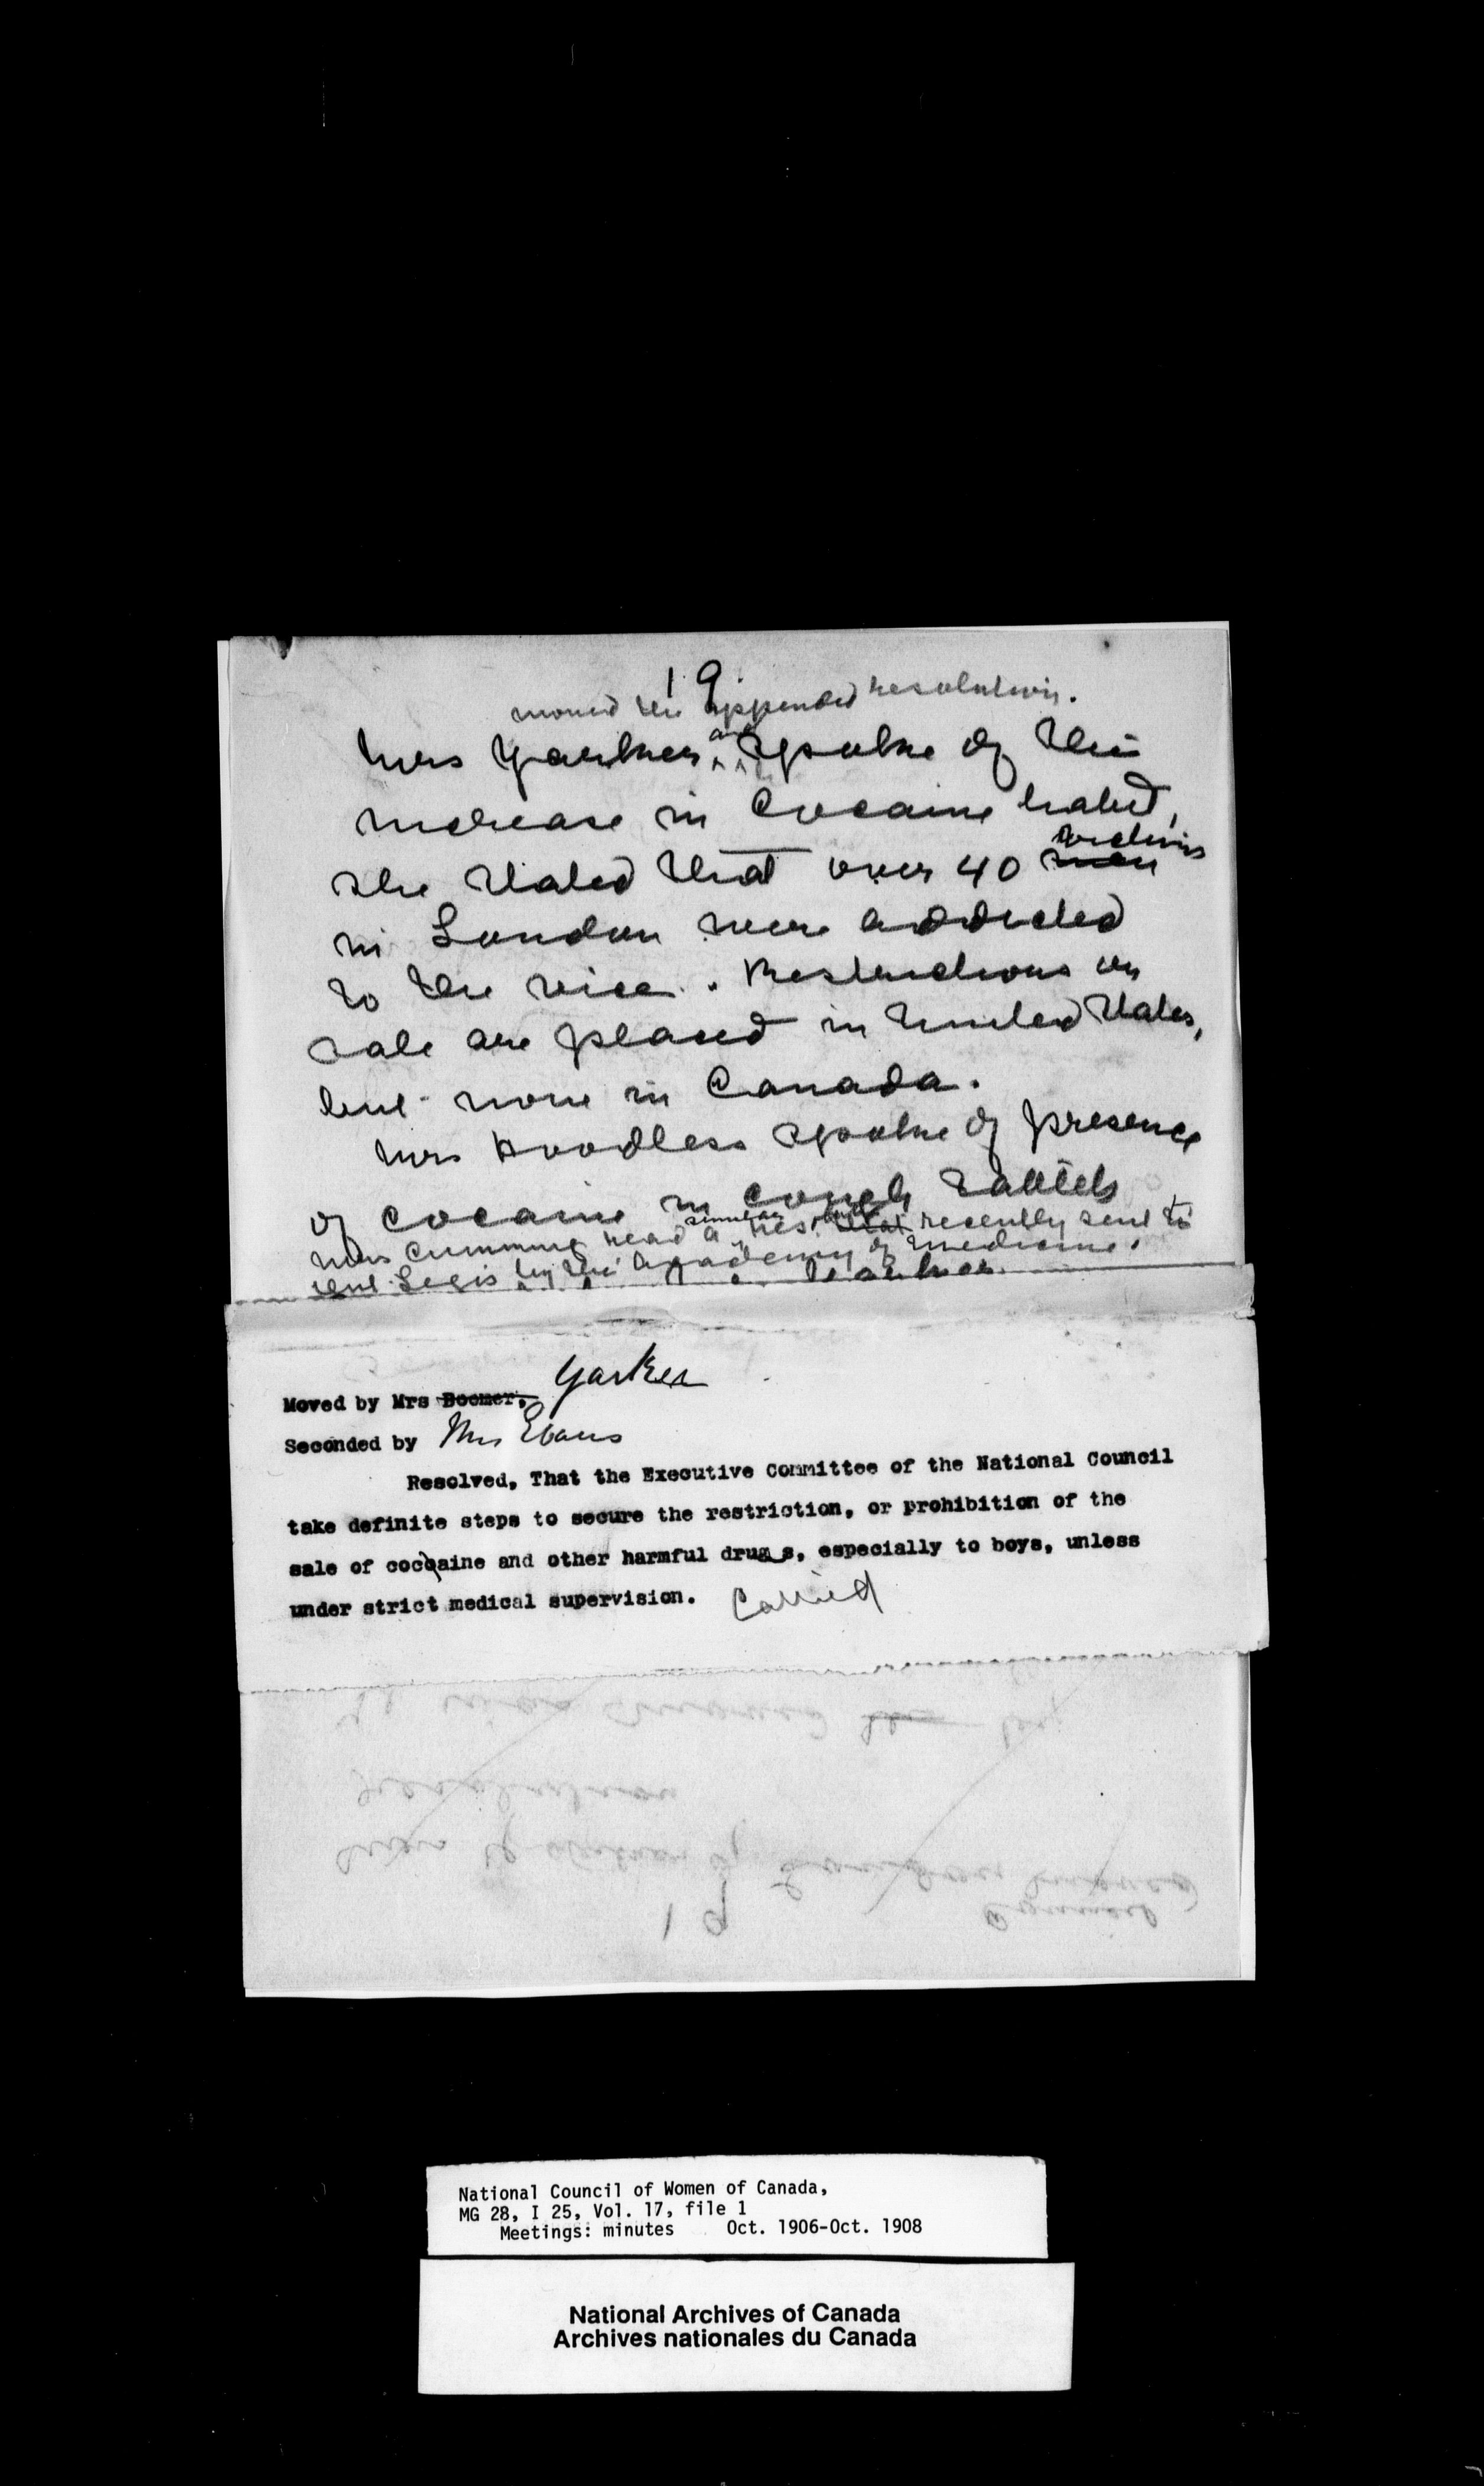 19
moved the appended resolution.
Mrs Yarker and spoke of the
increase in Cocaine habit,
she stated that over 40 men victims
in London were addicted
to the vice. Restrictions on
sale are placed in United States,
but none in Canada.
Mrs Hoodless spoke of presence
of cocaine in cough tablets
Mrs Cumming read a similar res. that recently sent to
Legis by the Academy of Medicine.
Yarker
Moved by Mrs Boomer,
Seconded by Mrs Evans
Resolved, That the Executive Committee of the National Council
take definite steps to secure the restriction, or prohibition of the
sale of cocqaine and other harmful drug s, especially to boys, unless
under strict medical supervision. Carried
19
National Council of Women of Canada,
MG 28, I 25, Vol. 17, file 1
Meetings: minutes Oct. 1906-Oct. 1908
National Archives of Canada
Archives nationales du Canada